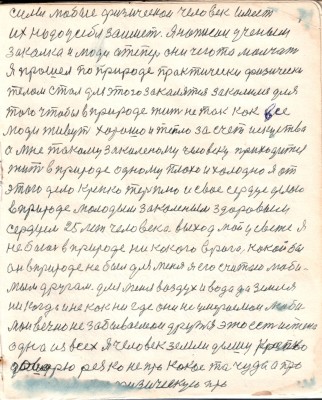 силы любые физической человек имеет
их надо себя защитет. Я написал ученым
закалка и люди а теперь они чего то молчат
Я прошел по природе практически физически
телом стал для этого закалятся закалился для
того чтобы в природе жит не так как все
люди живут хорошо и тепло за счет искуства
а мне такому закаленому человеку приходится
жит в природе одному плохо и холодно я от
этого дело крепко терплю и свое сердце делаю
в природе молодым закаленым здоровым
сердцем 25 лет человека выход мой у свете Я
не боюс в природе никокого врага, какой бы
он в природе не был для меня я его считаю люби-
мым другам. для меня воздух и вода да земля
никогда и не как ни где они не умераемои люби
мои вечно не забываемои друзя это ест истена
одна из всех я человек земли дышу крепко
говорю резко не про какое то чудо а про
физическую про